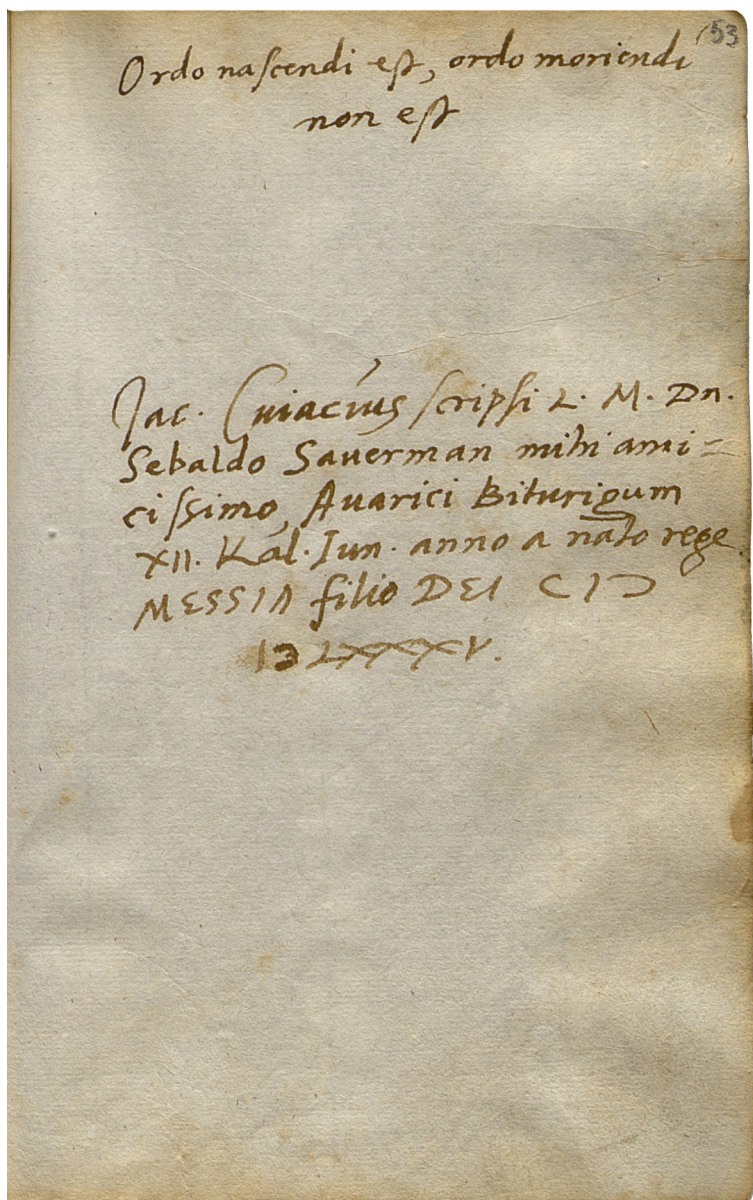 53
Ordo nascendi est, ordo moriendi
non est
Jac. Cuiacius scripsi L. M. Dn.
Sebaldo Saverman mihi ami=
cissimo, Avarici Biturigum
XII. Kal. Iun. anno a nato rege
MESSIA filio DEI CIↃ
IↃ LXXXV.